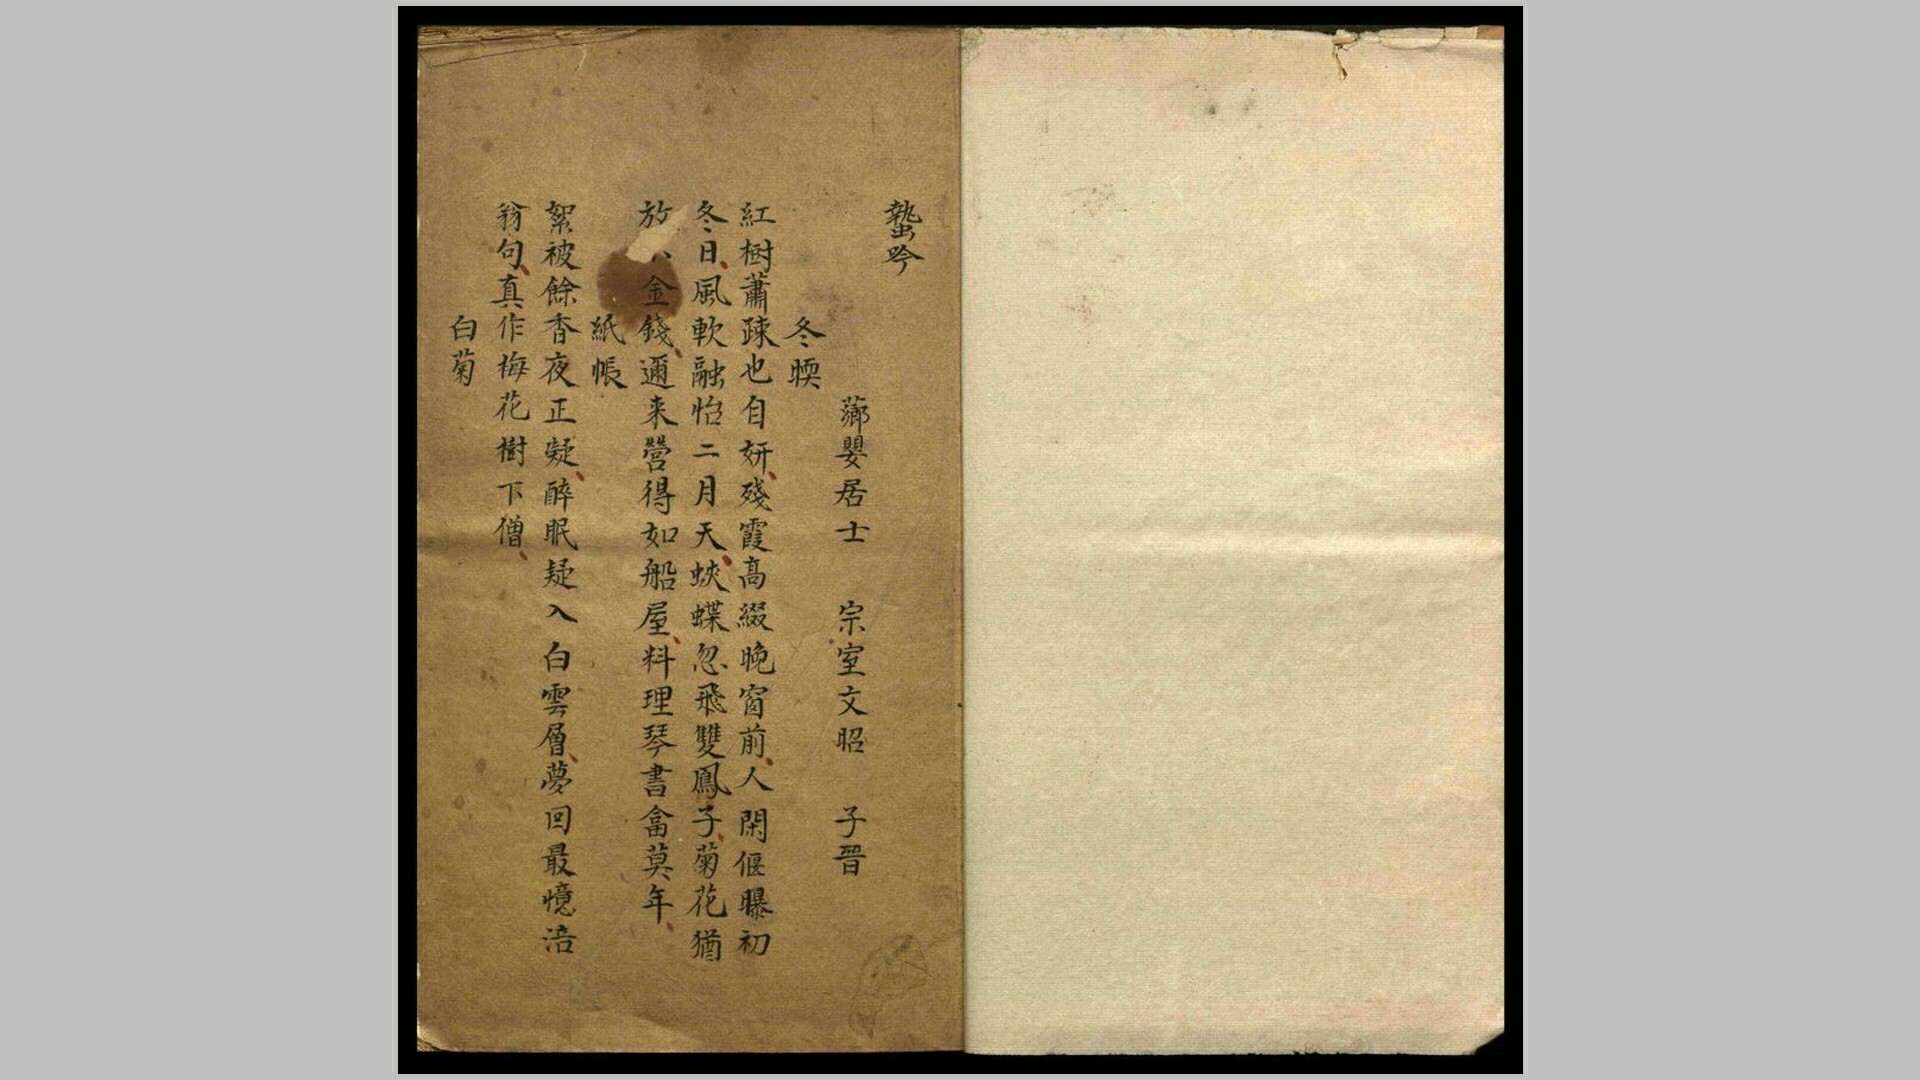 蟄吟
薌嬰居士 宗室文昭 子晋
冬暝
紅樹蕭疎也自妍殘霞高綴晚窗前人閑偃曝初
冬日風軟融怡二月天蛺蝶忽飛雙鳳子菊花猶
放 金錢邇来營得如船屋料理琴書畲莫年
紙帳
絮被餘香夜正凝醉眠疑入白雲層夢回最憶涪
翁句真作梅花樹下僧
白菊